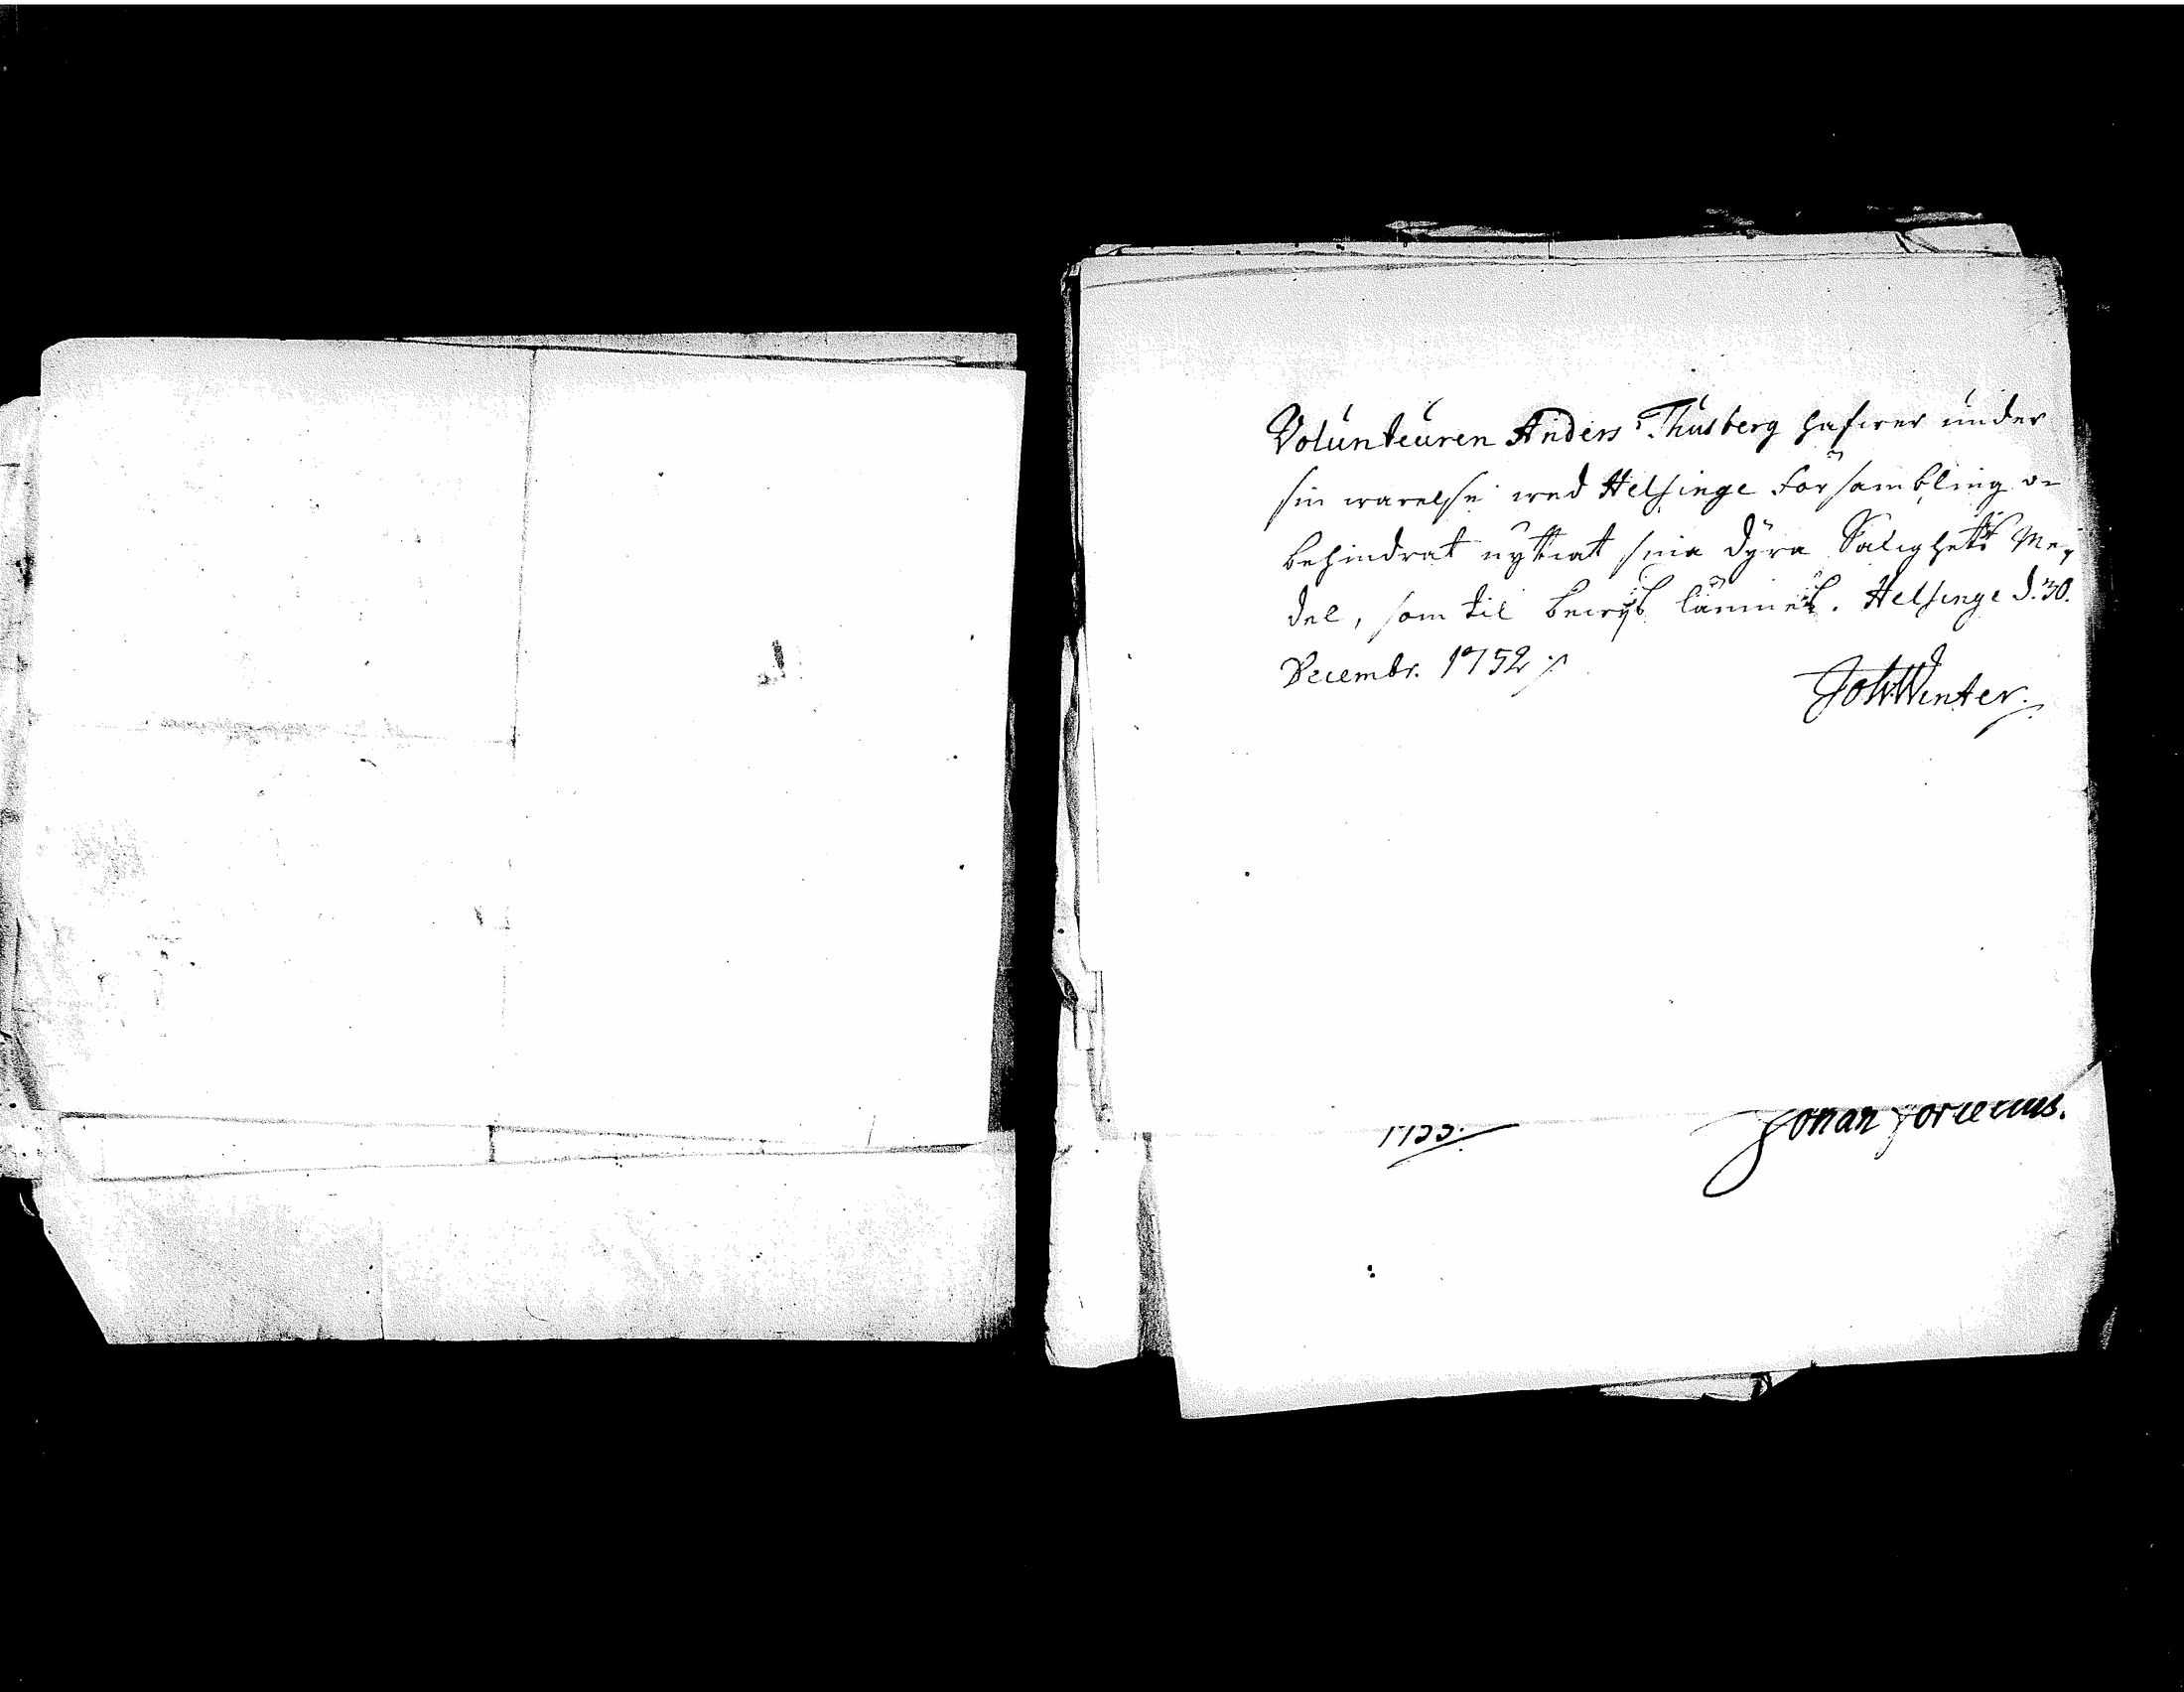 Volunteuren Anders Thusberg hafwer under
sin warelse wed Helsinge Försambling o-
behindrat nyttiat sina dyra Salighets Me-
del, som til bewys lämnes. Helsinge d. 30.
Decembr. 1752 ./.
Joh Winter.
Jonan